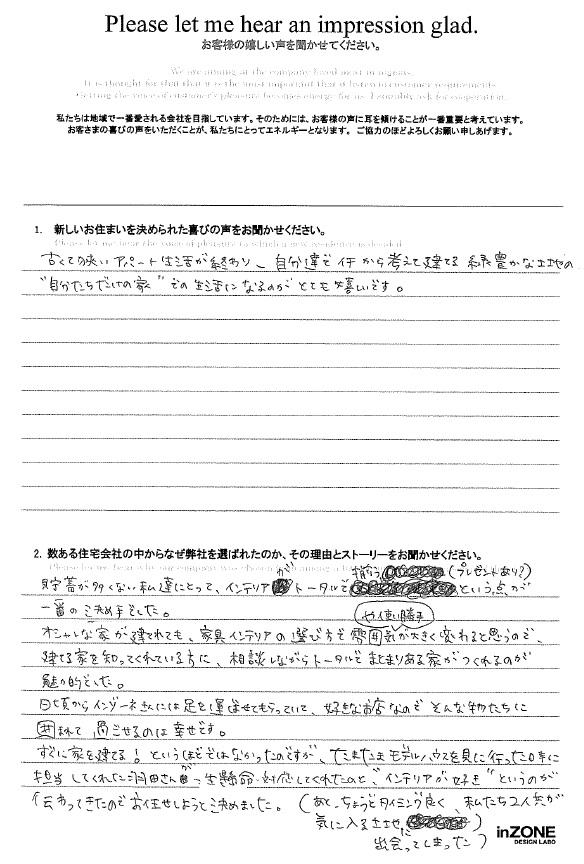 Please let me hear an impression glad.
お客様の嬉しい声を聞かせてください。
We are aiming at the company loved most in regions.
It is thought for that that it is the most important that it listen to customer requirements.
Getting the voice of customer's pleasure becomes energy for us. I humbly ask for cooperation.
私たちは地域で一番愛される会社を目指しています。そのためには、お客様の声に耳を傾けることが一番重要と考えています。
お客さまの喜びの声をいただくことが、私たちにとってエネルギーとなります。 ご協力のほどよろしくお願い申しあげます。
1. 新しいお住まいを決められた喜びの声をお聞かせください。
Please let me hear the voice of pleasure to which a new residence is decided.
古くて狭いアパート生活が終わり、自分達で1から考えて建てる 緑豊かな土地の
"自分たちだけの家" での生活になるのがとても嬉しいです。
2. 数ある住宅会社の中からなぜ弊社を選ばれたのか、その理由とストーリーをお聞かせください。
Please let me hear why our company was chosen
が 揃う (プレゼントあり?)
貯蓄が多くない私達にとって、インテリア トータルで という点が
一番の決め手でした。
や使い勝手
オシャレな家が建てれても、家具インテリアの選び方で雰囲気が大きく変わると思うので、
建てる家を知ってくれている方に、相談しながらトータルでまとまりある家がつくれるのが
魅力的でした。
日頃からインゾーネさんには足を運ばせてもらっていて、好きなお店なので そんな物たちに
囲まれて過ごせるのは幸せです。
すぐに家を建てる！というほどではなかったのですが、たまたまモデルハウスを見に行った時に
担当してくれた羽田さんが一生懸命対応してくれたのと、"インテリアが好き"というのが
伝わってきたのでお任せしようと決めました。 (あと、ちょうどタイミング良く、私たち2人共が
気に入る土地 に
出会ってしまった)
inZONE
DESIGN LABO